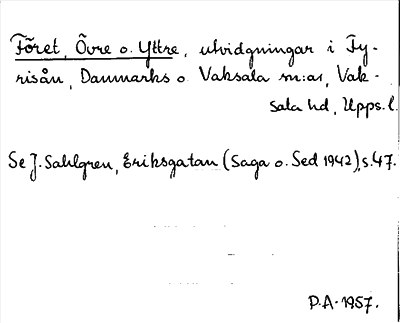 Föret, Övre o. Yttre, utvidgningar i Fy-
risån, Danmarks o. Vaksala sn:ar, Vak-
sala hd, Upps.l.
Se J. Sahlgren, Eriksgatan (Saga o. Sed 1942), s.47.
P.A. 1957.